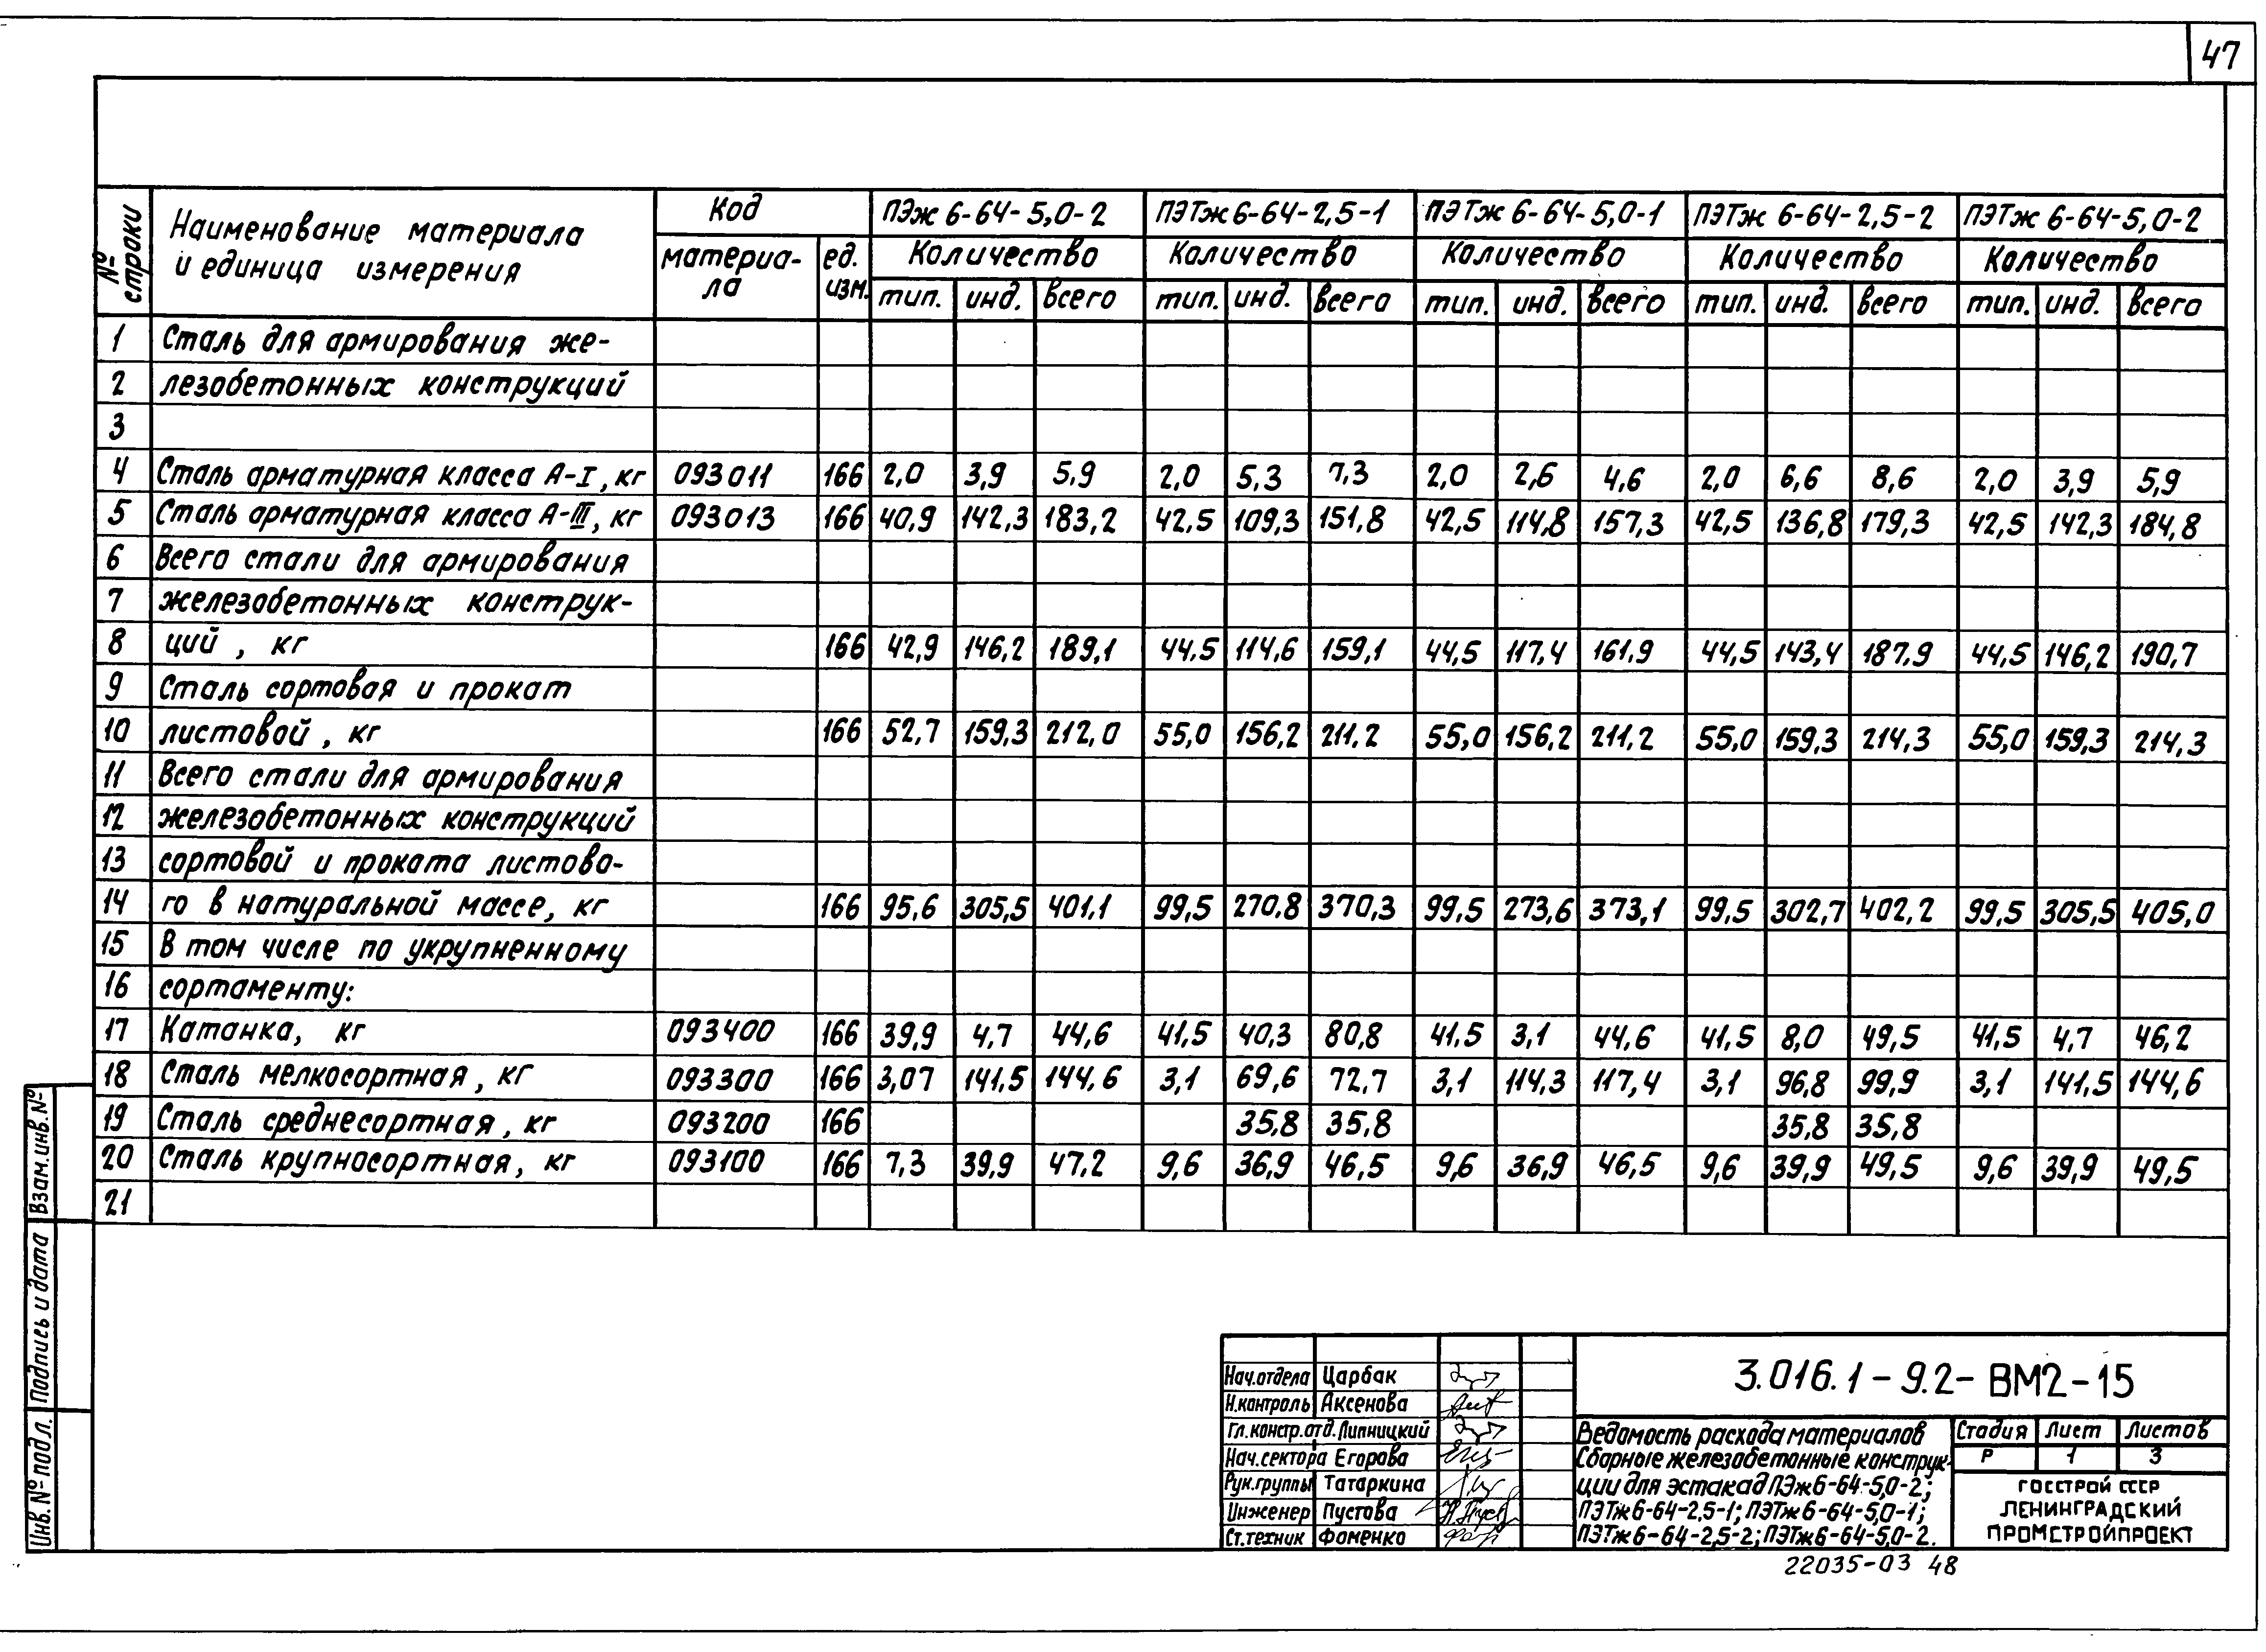 47
№ строки | Наименование материала и единица измерения | Код | ПЭж 6-64-5,0-2 | ПЭТж 6-64-2,5-1 | ПЭТж 6-64-5,0-1 | ПЭТж 6-64-2,5-2 | ПЭТж 6-64-5,0-2
материа-ла | ед. изм. | Количество | Количество | Количество | Количество | Количество
тип. | инд. | всего | тип. | инд. | всего | тип. | инд. | всего | тип. | инд. | всего | тип. | инд. | всего
1 Сталь для армирования же-
2 лезобетонных конструкций
3
4 Сталь арматурная класса А-I, кг 093011 166 2,0 3,9 5,9 2,0 5,3 7,3 2,0 2,6 4,6 2,0 6,6 8,6 2,0 3,9 5,9
5 Сталь арматурная класса А-III, кг 093013 166 40,9 142,3 183,2 42,5 109,3 151,8 42,5 114,8 157,3 42,5 136,8 179,3 42,5 142,3 184,8
6 Всего стали для армирования
7 железобетонных конструк-
8 ций, кг 166 42,9 146,2 189,1 44,5 114,6 159,1 44,5 117,4 161,9 44,5 143,4 187,9 44,5 146,2 190,7
9 Сталь сортовая и прокат
10 листовой, кг 166 52,7 159,3 212,0 55,0 156,2 211,2 55,0 156,2 211,2 55,0 159,3 214,3 55,0 159,3 214,3
11 Всего стали для армирования
12 железобетонных конструкций
13 сортовой и проката листово-
14 го в натуральной массе, кг 166 95,6 305,5 401,1 99,5 270,8 370,3 99,5 273,6 373,1 99,5 302,7 402,2 99,5 305,5 405,0
15 В том числе по укрупненному
16 сортаменту:
17 Катанка, кг 093400 166 39,9 4,7 44,6 41,5 40,3 80,8 41,5 3,1 44,6 41,5 8,0 49,5 41,5 4,7 46,2
18 Сталь мелкосортная, кг 093300 166 3,07 141,5 144,6 3,1 69,6 72,7 3,1 114,3 117,4 3,1 96,8 99,9 3,1 141,5 144,6
19 Сталь среднесортная, кг 093200 166 35,8 35,8 35,8 35,8
20 Сталь крупносортная, кг 093100 166 7,3 39,9 47,2 9,6 36,9 46,5 9,6 36,9 46,5 9,6 39,9 49,5 9,6 39,9 49,5
21
Взам.инв.№
Подпись и дата
Инв.№ подл.
Нач.отдела Царбак
Н.контроль Аксенова
Гл.констр.отд. Липницкий
Нач.сектора Егорова
Рук.группы Татаркина
Инженер Пустова
Ст.техник Фоменко
3.016.1-9.2-ВМ2-15
Ведомость расхода материалов
Сборные железобетонные конструк-
ции для эстакад ПЭж6-64-5,0-2;
ПЭТж6-64-2,5-1; ПЭТж6-64-5,0-1;
ПЭТж6-64-2,5-2; ПЭТж6-64-5,0-2.
Стадия Лист Листов
Р 1 3
ГОССТРОЙ СССР
ЛЕНИНГРАДСКИЙ
ПРОМСТРОЙПРОЕКТ
22035-03 48